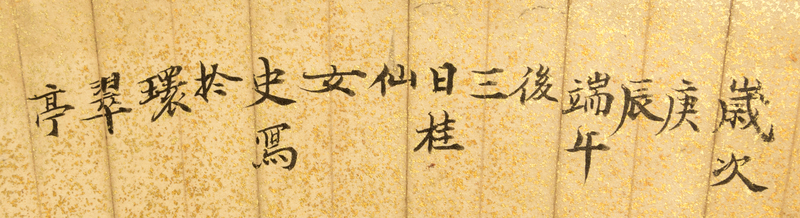 歲次
庚
辰
端午
後
三
日桂
仙
女
史寫
於
環
翠
亭